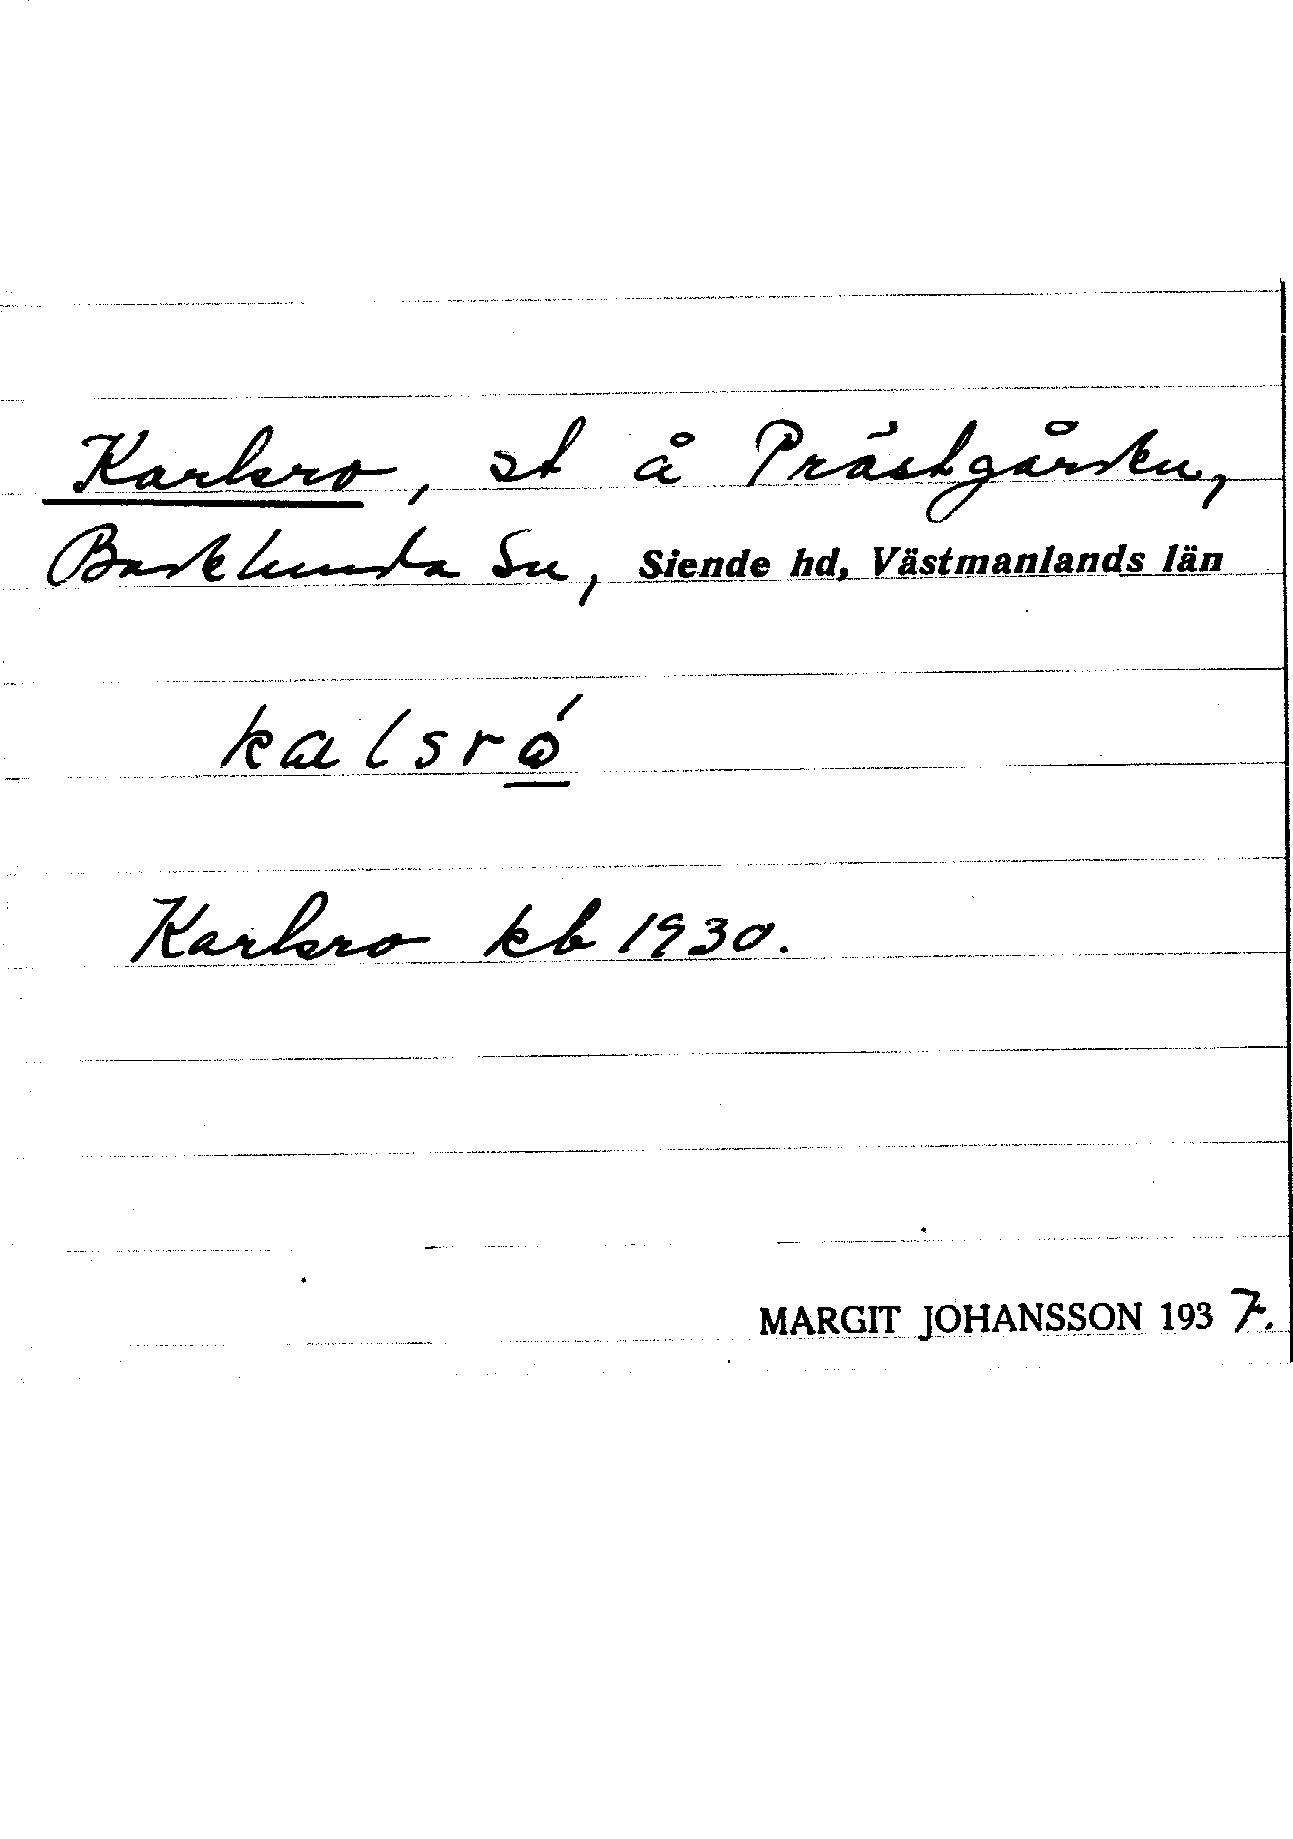 Karlsro, st å Prästgården,
Badelunda sn, Siende hd, Västmanlands län
kalsró
Karlsro kb 1930.
MARGIT JOHANSSON 1937.